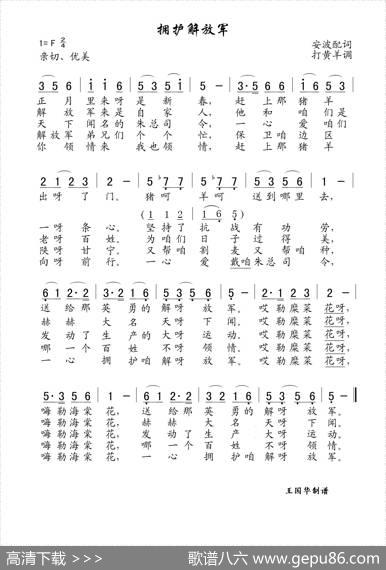 拥护解放军
1=F 2/4
安波配词
亲切、优美
打黄羊调
3 5 6 | i i 6 | 5 3 5 6 | i - | 5 3 5 | 5 5 3 |
正 月 里来呀 是 新 春， 赶 上那 猪 羊
解 放 军来是 自 家 人， 他 和 咱 们是
天 下 闻名的 朱总司 令， 一 心 爱 咱们
解 放军 弟兄们 个 个 忙， 保 卫咱 边 区
你 领 情来 我 也领 情， 赶 上那 猪 羊
2 1 2 3 | 2 - | 5 ♭7 7 | 5 ♭7 7 | 5 3 5 6 | 1 - |
出 呀 了 门。 猪呵 羊 呵 送 到 哪里 去，
(1 1 | 1 6 5)
一 呀 条 心。 坚持了 抗 战 有 功 劳，
老 呀 百 姓。 为咱们 日 子 过 得 美，
陕 呀 甘 宁。 又 帮咱 割 麦 又 帮咱 种，
向 呀 前 行。 一 心 爱 戴咱 朱总司 令，
6 1 2· 2 | 3 2 1 6 | 5 3 5 6 | 5 - | 2· 1 2 3 | 5 6 5 |
送 给那 英 勇的 解 呀 放 军。 哎 勒 糜菜 花呀，
赫 赫 大 名 天 呀 下 闻。 哎 勒 糜菜 花呀，
发 动 了 生 产的 大 呀 运 动。 哎 勒 糜菜 花呀，
哪 一 个 百 姓 不 呀 领 情。 哎 勒 糜菜 花呀，
一 心 拥 护咱 解 呀 放 军。 哎 勒 糜菜 花呀，
5· 3 5 6 | 1 - | 6 1 2· 2 | 3 2 1 6 | 5 3 5 6 | 5 - ‖
嗨 勒海 棠 花， 送 给那 英 勇的 解 呀 放 军。
嗨 勒海 棠 花， 赫 赫 大 名 天 呀 下 闻。
嗨 勒海 棠 花， 发 动 了 生 产 大 呀 运 动。
嗨 勒海 棠 花， 哪 一 个 百 姓 不 呀 领 情。
嗨 勒海 棠 花， 一 心 拥 护咱 解 呀 放 军。
王国华制谱
高清下载 >>>> 歌谱八六 www.gepu86.com